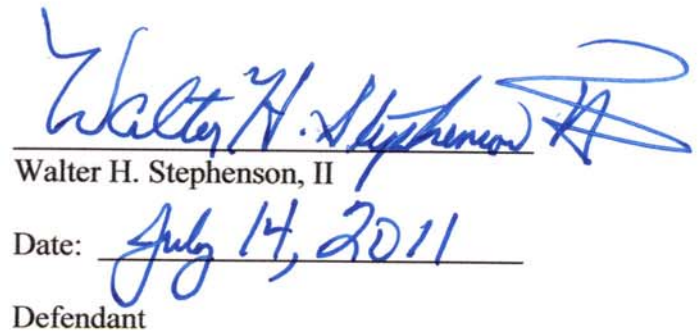 Walter H. Stephenson II
Walter H. Stephenson, II
Date: July 14, 2011
Defendant